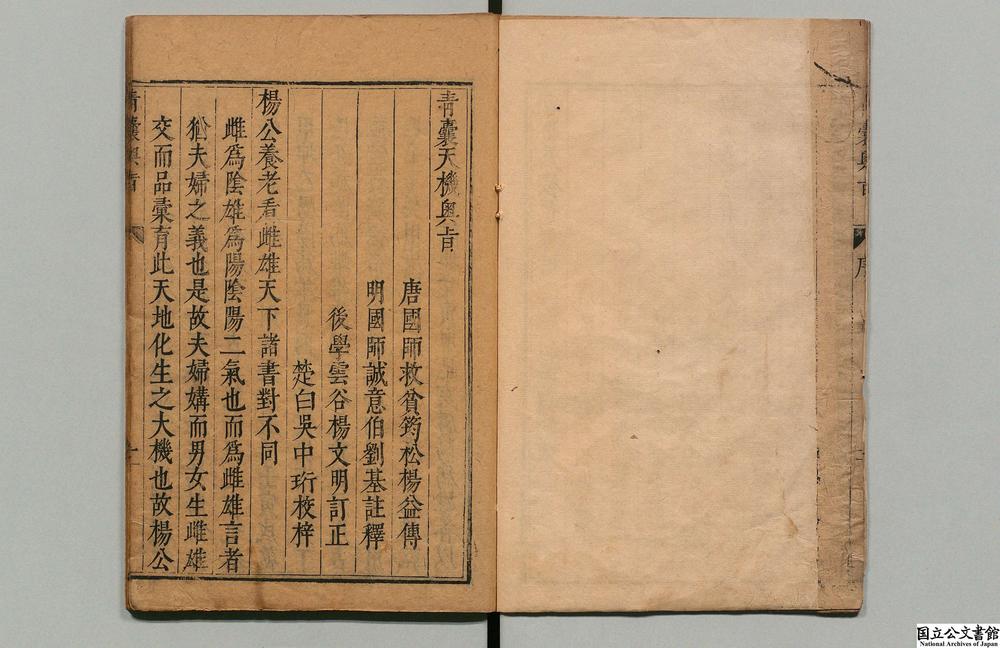 囊奧旨
序
青囊天機奧旨
唐國師救貧筠松楊益傳
明國師誠意伯劉基註釋
後學雲谷楊文明訂正
楚白吳中珩校梓
楊公養老看雌雄天下諸書對不同
雌爲陰雄爲陽陰陽二氣也而爲雌雄言者
猶夫婦之義也是故夫婦媾而男女生雌雄
交而品彙育此天地化生之大機也故楊公
青囊奧旨
国立公文書館
National Archives of Japan